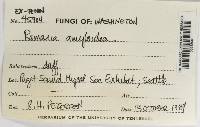 EX-TENN
No. 45904 FUNGI OF: WASHINGTON
Ramaria amyloidea
Substratum: duff
Puget Sound Mycol Soc Exhibit, Seattle
R. H. PETERSEN Date 13 OCTOBER 1984
HERBARIUM OF THE UNIVERSITY OF TENNESSEE